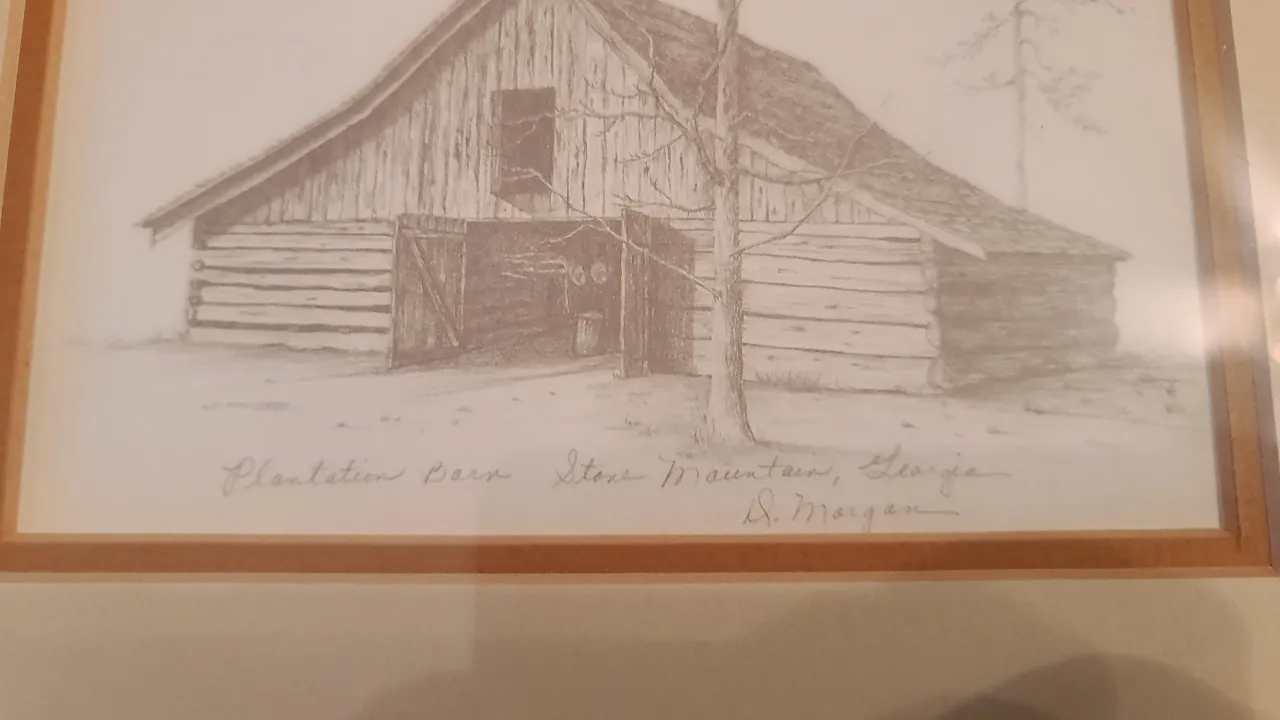 Plantation Barn Stone Mountain, Georgia
D. Morgan